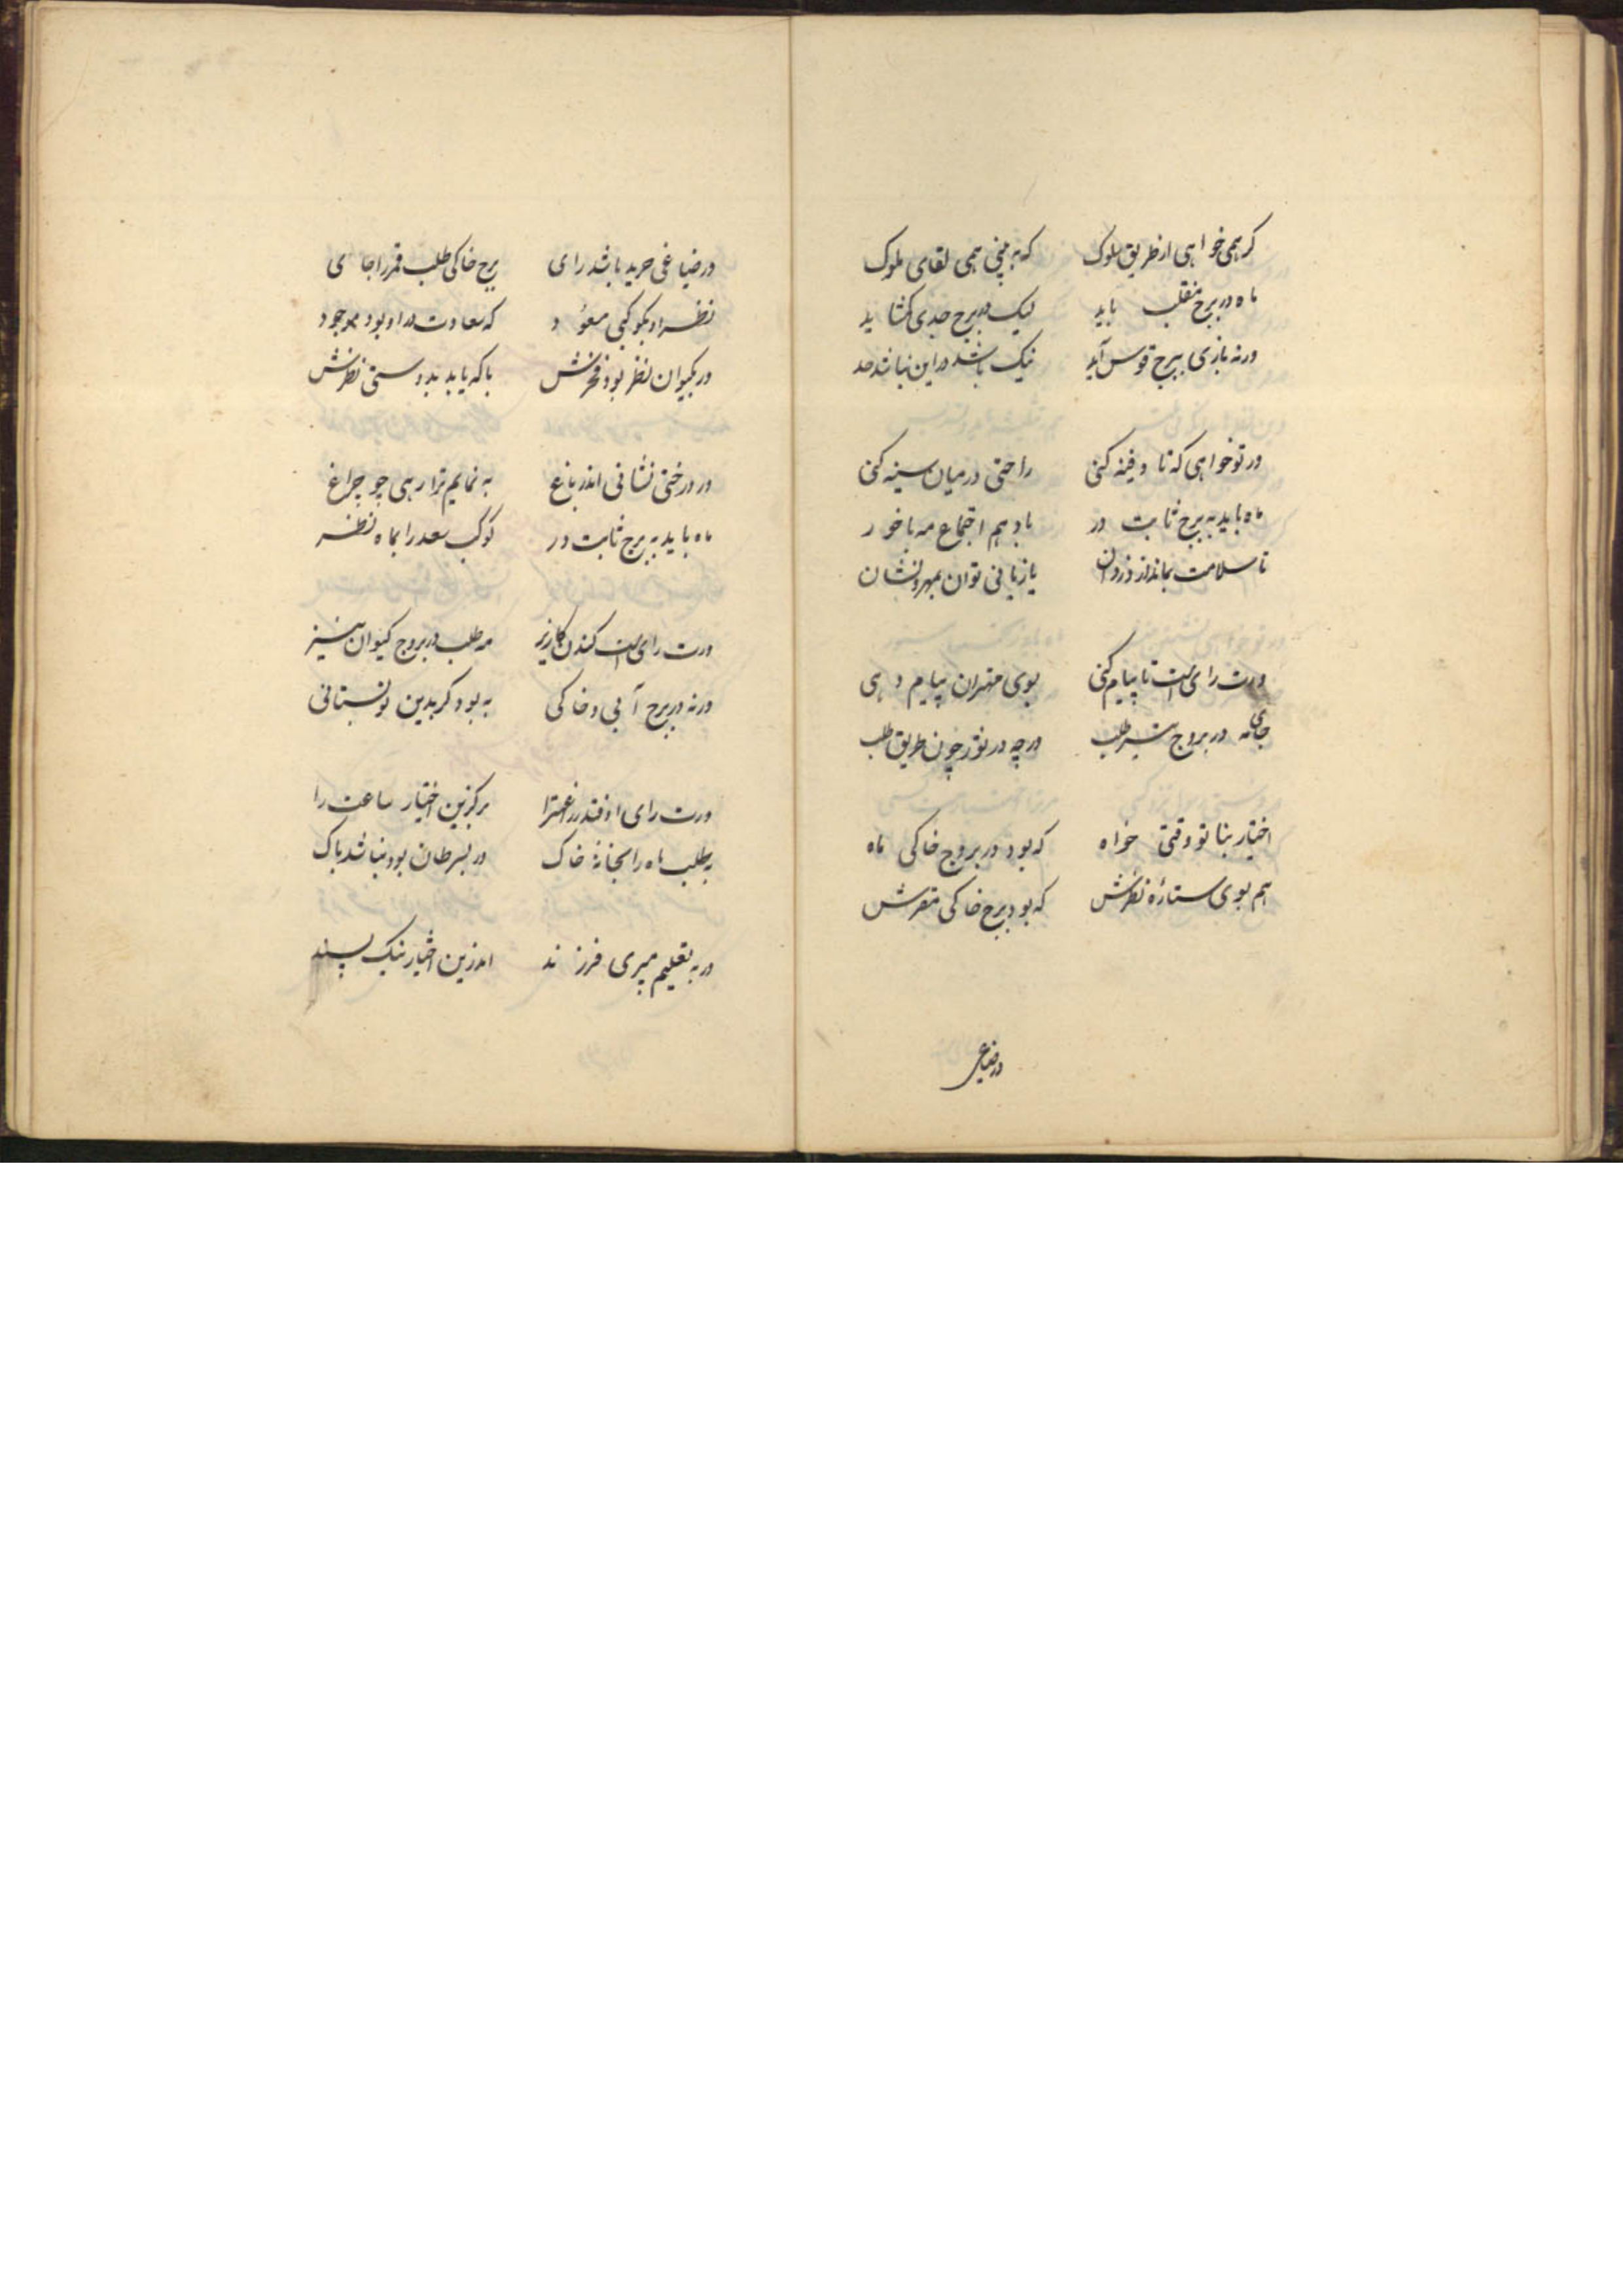 کر همی خواهی از طریق سلوک که به بینی همی لقای ملوک
ماه در برج منقلب باید لیک در برج جدی نکشاید
ورنه بازی ببرج قوس آید نیک باشد در این نباشد صد
ور تو خواهی که تا دفینه کنی راحتی در میان سینه کنی
ماه باید به برج ثابت در باد هم اجتماع مه با خور
تا سلامت بماند از دزدان یا زیانی توان بمهر و نشان
ورت رای است تا پیام کنی بوی مهتران پیام دهی
جای مه در بروج شیر طلب ورچه در ثور چون طریق طلب
اختیار بنا تو وقتی خواه که بود در بروج خاکی ماه
هم بوی ستاره نظرش که بود برج خاکی مقرش
در ضیاعی
در ضیاعی خرید باشد رای برج خاکی طلب قمر را جای
نظر او بکوکبی مسعود که سعادت در او بود موجود
ور بکیوان نظر بود فخرش باکه یابد بدوستی نظرش
ور درختی نشانی اندر باغ به نمایم ترا رهی چو چراغ
ماه باید به برج ثابت در کوکب سعد را بماه نظر
ورت رای است کندن کاریز مه طلب در بروج کیوان نیز
ورنه در برج آبی و خاکی به بود کر بدین تو نستانی
ورت رای اوفتد زراعترا برکزین اختیار ساعت را
به طلب ماه را بخانه خاک ور بسرطان بود نباشد باک
ور به تعلیم میبری فرزند اندرین اختیار نیک پسند